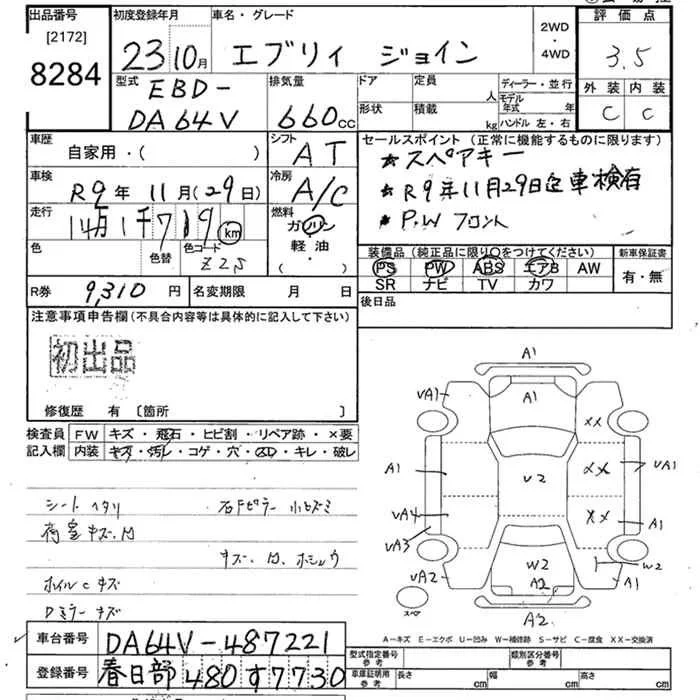 出品番号
[2172]
8284
初度登録年月
23 10月
車名・グレード
エブリィ ジョイン
2WD
・
4WD
評価点
3.5
外装 内装
C C
型式
EBD-
DA64V
排気量
660cc
ドア 定員 人
形状 積載 kg
ディーラー・並行
モデル年式 年
ハンドル 左・右
車歴
自家用・( )
シフト
AT
セールスポイント (正常に機能するものに限ります)
★スペアキー
★R9年11月29日迄車検有
★P.W フロント
車検
R9年 11月(29日)
冷房
A/C
走行
14万1千719 km
燃料
ガソリン
軽油
・
( )
色
色替
色コード
Z2S
装備品 (純正品に限り○をつけてください)
PS PW ABS エアB AW
SR ナビ TV カワ
新車保証書
有・無
R券 9,310円
名変期限 月 日
後日品
注意事項申告欄 (不具合内容等は具体的に記入して下さい)
初出品
修復歴 有 〔箇所 〕
検査員記入欄
FW キズ・飛石・ヒビ割・リペア跡・×要
内装 キズ・汚レ・コゲ・穴・凹・キレ・破レ
シート ヘタリ
右Fピラー 小ヒズミ
荷室 キズ、凹
キズ、凹、ホシュウ
ホイルc キズ
Dミラー キズ
A1
UA1
A1
XX
A1
U2
XX
UA1
UA4
XX
A1
UA3
UA2
W2
A2
W2
A1
スペア
A2
A-キズ E-エクボ U-凹み W-補修跡 S-サビ C-腐食 XX-交換済
車台番号 DA64V-487221
登録番号 春日部 480 す 7730
型式指定番号
参考
類別区分番号
参考
車庫証明用
参考
長さ cm
幅 cm
高さ cm